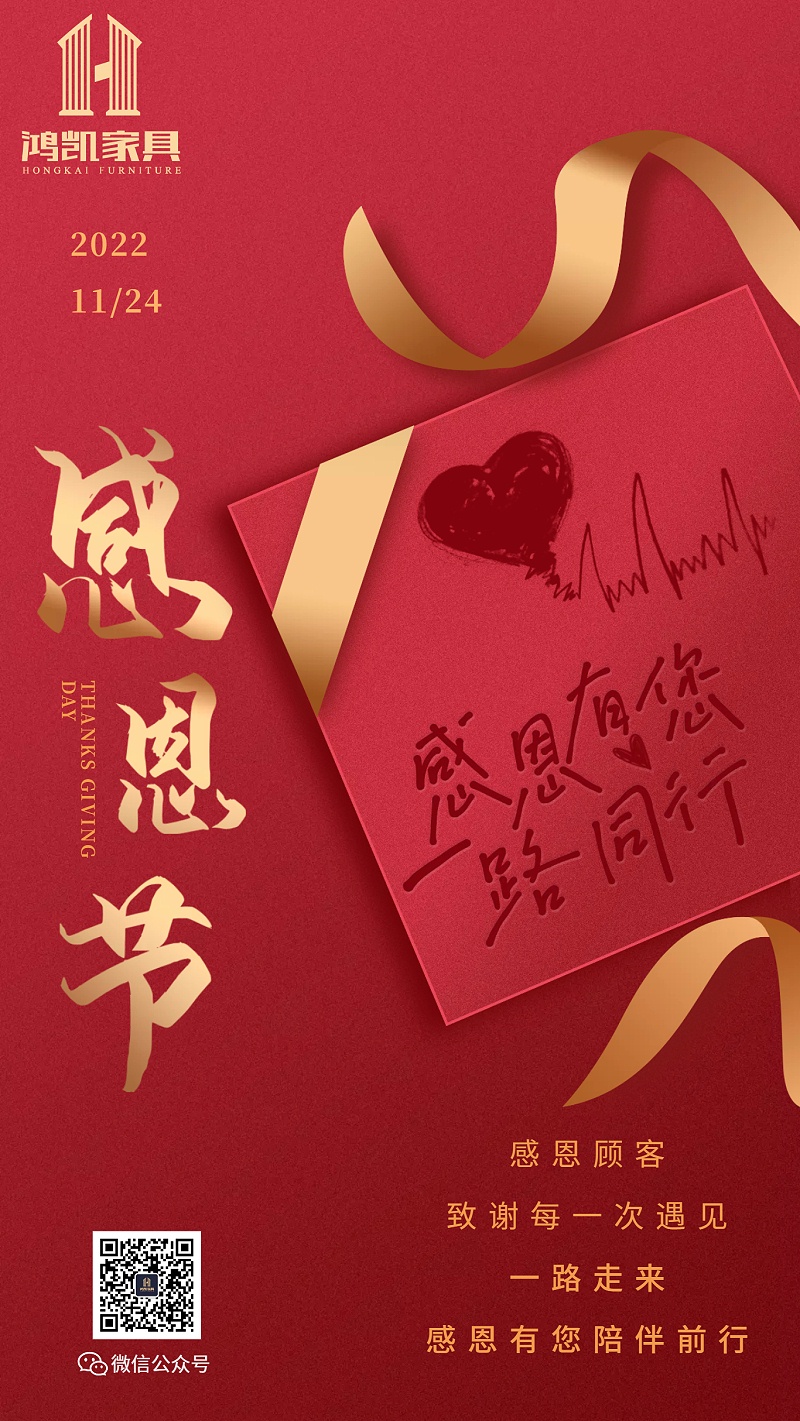 鸿凯家具
HONGKAI FURNITURE
2022
11/24
感恩节
THANKS GIVING
DAY
感恩有您
一路同行
感恩顾客
致谢每一次遇见
一路走来
感恩有您陪伴前行
微信公众号